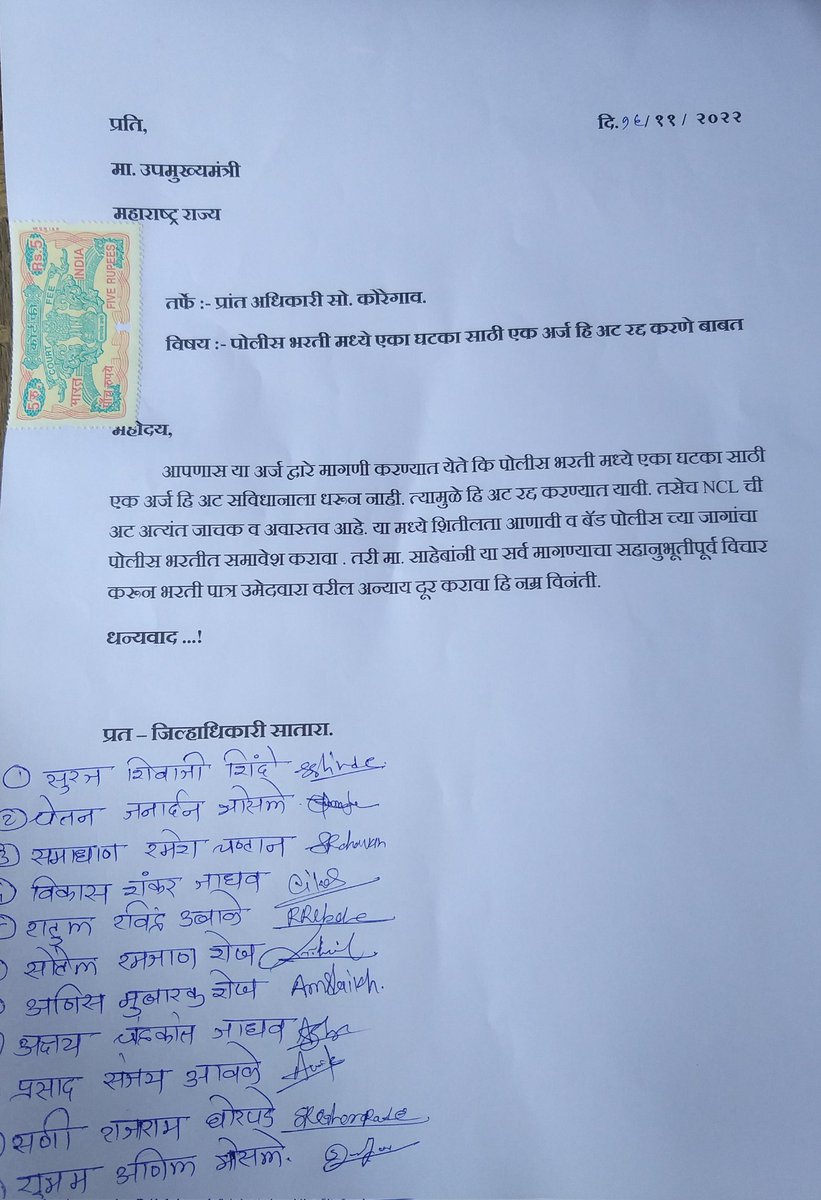 प्रति,
दि.१६/११/ २०२२
मा. उपमुख्यमंत्री
महाराष्ट्र राज्य
५रु. कोर्ट फी Rs.5
COURT FEE
भारत INDIA
पाँच रुपये FIVE RUPEES
तर्फे :- प्रांत अधिकारी सो. कोरेगाव.
विषय :- पोलीस भरती मध्ये एका घटका साठी एक अर्ज हि अट रद्द करणे बाबत
महोदय,
आपणास या अर्ज द्वारे मागणी करण्यात येते कि पोलीस भरती मध्ये एका घटका साठी
एक अर्ज हि अट सविधानाला धरून नाही. त्यामुळे हि अट रद्द करण्यात यावी. तसेच NCL ची
अट अत्यंत जाचक व अवास्तव आहे. या मध्ये शितीलता आणावी व बॅड पोलीस च्या जागांचा
पोलीस भरतीत समावेश करावा . तरी मा. साहेबांनी या सर्व मागण्याचा सहानुभूतीपूर्व विचार
करून भरती पात्र उमेदवारा वरील अन्याय दूर करावा हि नम्र विनंती.
धन्यवाद ...!
प्रत – जिल्हाधिकारी सातारा.
१) सुरज शिवाजी शिंदे SShinde
२) चेतन जनार्दन भोसले
3) समाधान रमेश चव्हाण SRchavan
विकास शंकर जाधव
राहुल रविंद्र उबाळे RRUbale
सोहेल रमजाण शेख
अनिस मुबारक शेख AmShaikh.
अक्षय चंद्रकांत जाधव
प्रसाद संजय आवळे
सनी राजाराम घोरपडे SRGhorpade
शुभम अनिल भोसले.